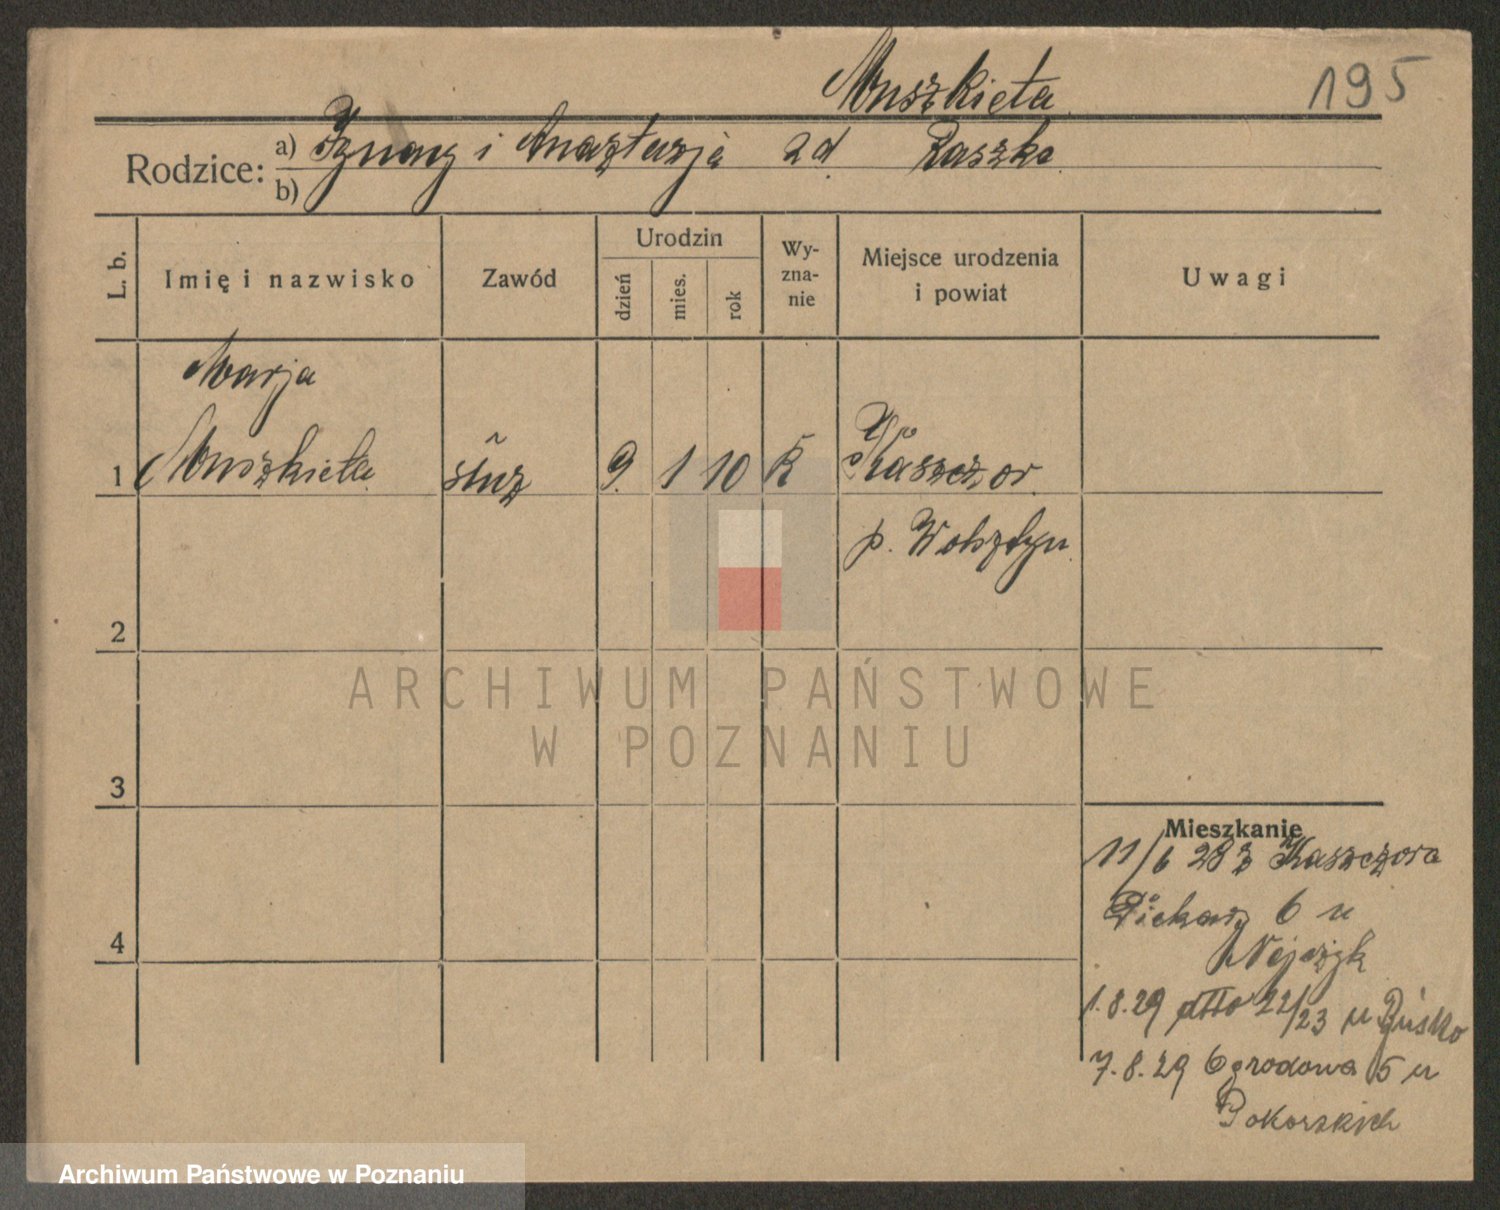 Muszkieta
195
Rodzice:
a) Ignacy i Anastazja zd Raszka
b)
L. b.
Imię i nazwisko
Zawód
Urodzin
dzień
mies.
rok
Wy-
zna-
nie
Miejsce urodzenia
i powiat
Uwagi
Marja
1 Muszkieta służ 9. 1 10 K Kaszczor
p. Wolsztyn
2
3
4
Mieszkanie
11/6 28 z Kaszczora
Piekary 6 u
1.8.29 dtto 22/23 u
7.8.29 Ogrodowa 5 u
Pokorskich
ARCHIWUM PAŃSTWOWE
W POZNANIU
Archiwum Państwowe w Poznaniu